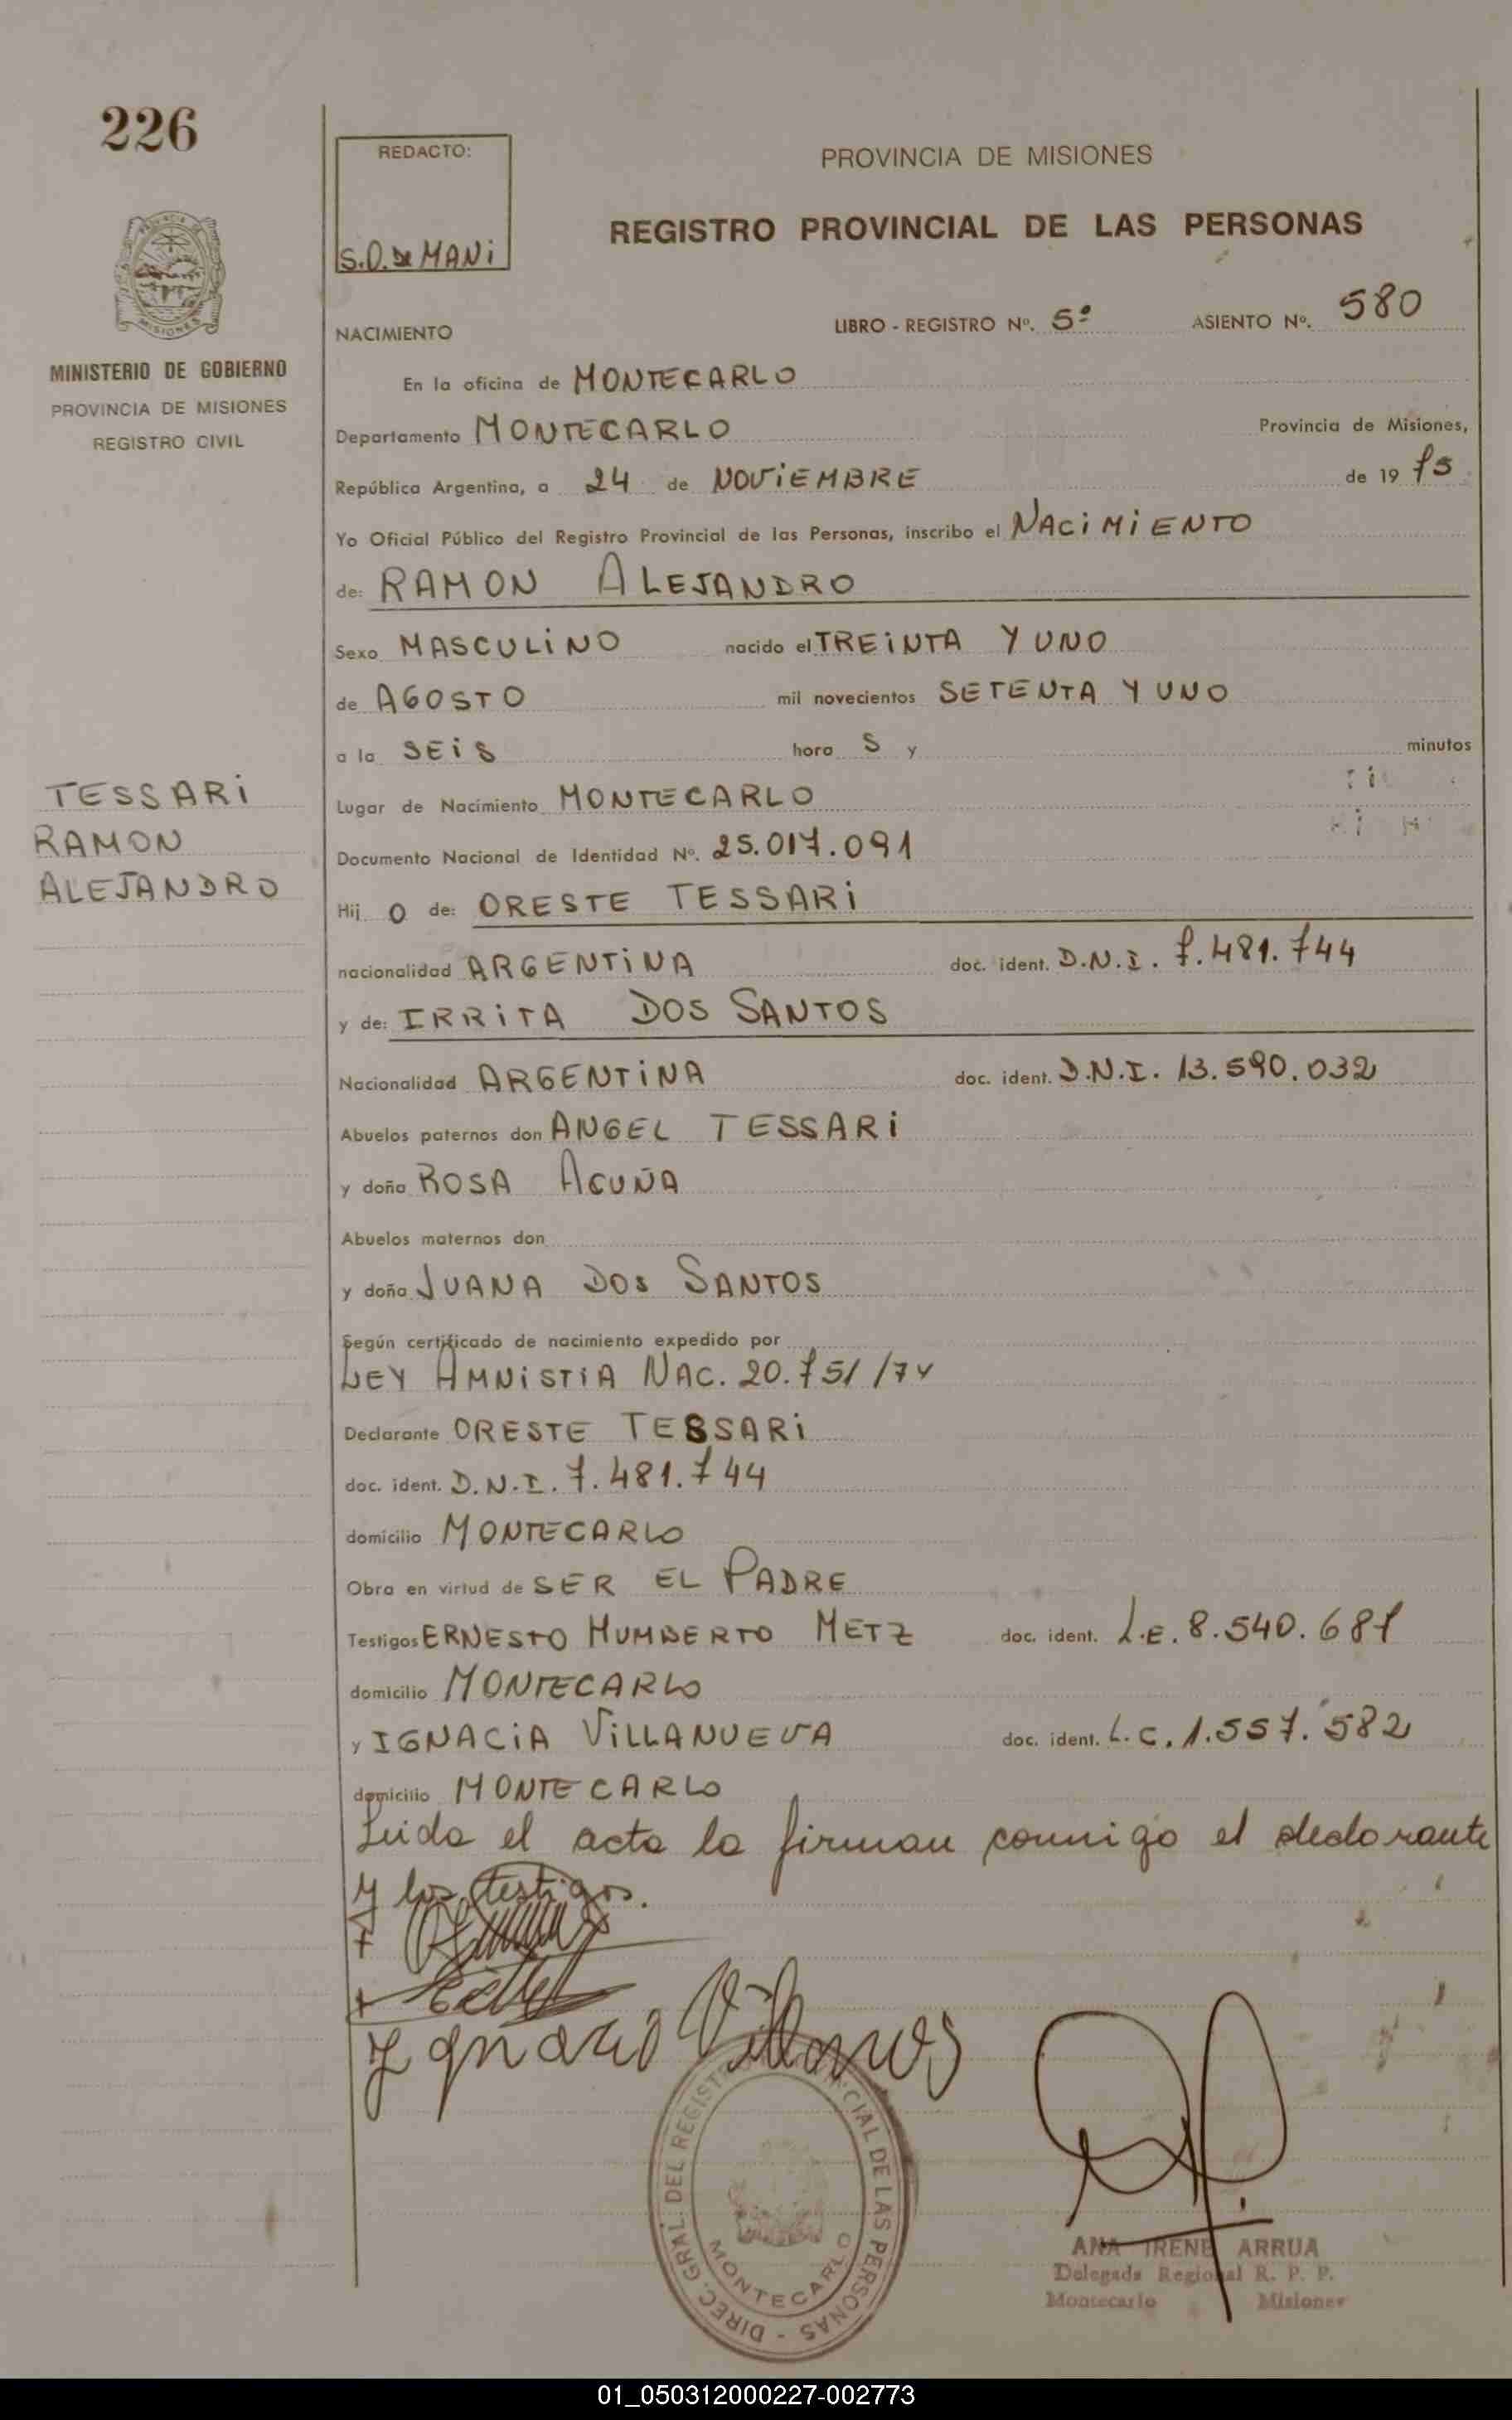 226
REDACTO:
S.O. DE MANI
PROVINCIA DE MISIONES
REGISTRO PROVINCIAL DE LAS PERSONAS
MISIONES
MINISTERIO DE GOBIERNO
PROVINCIA DE MISIONES
REGISTRO CIVIL
NACIMIENTO LIBRO - REGISTRO Nº. 5º ASIENTO Nº. 580
En la oficina de MONTECARLO
Departamento MONTECARLO Provincia de Misiones,
República Argentina, a 24 de NOVIEMBRE de 1975
Yo Oficial Público del Registro Provincial de las Personas, inscribo el NACIMIENTO
de: RAMON ALEJANDRO
Sexo MASCULINO nacido el TREINTA Y UNO
de AGOSTO mil novecientos SETENTA Y UNO
a la SEIS hora S y minutos
TESSARI
RAMON
ALEJANDRO
Lugar de Nacimiento MONTECARLO
Documento Nacional de Identidad Nº. 25.017.091
Hij O de: ORESTE TESSARI
nacionalidad ARGENTINA doc. ident. D.N.I. 7.481.744
y de: IRRITA DOS SANTOS
Nacionalidad ARGENTINA doc. ident. D.N.I. 13.590.032
Abuelos paternos don ANGEL TESSARI
y doña ROSA ACUÑA
Abuelos maternos don
y doña JUANA DOS SANTOS
Según certificado de nacimiento expedido por
LEY AMNISTIA NAC. 20.751/74
Declarante ORESTE TESSARI
doc. ident. D.N.I. 7.481.744
domicilio MONTECARLO
Obra en virtud de SER EL PADRE
Testigos ERNESTO HUMBERTO METZ doc. ident. L.E. 8.540.687
domicilio MONTECARLO
y IGNACIA VILLANUEVA doc. ident. L.C. 1.557.582
domicilio MONTECARLO
Leida el acta la firman conmigo el declarante
y los testigos.
DIREC. GRAL. DEL REGISTRO PROVINCIAL DE LAS PERSONAS - MONTECARLO
ANA IRENE ARRUA
Delegada Regional R. P. P.
Montecarlo Misiones
01_050312000227-002773